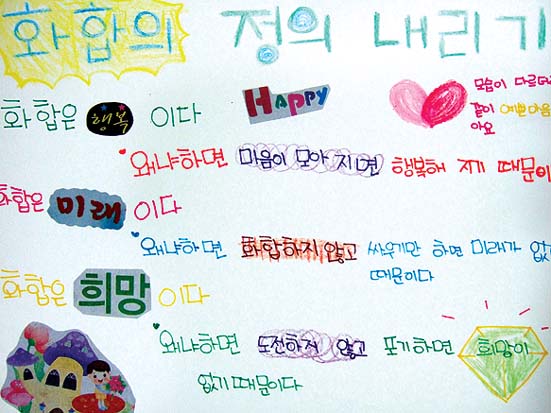 화합의 정의 내리기
Happy
모습이 다르
화합은 행복 이다
같이 예쁜마음
아요
왜냐하면 마음이 모아 지면 행복해 지기 때문이
화합은 미래 이다
왜냐하면 화합하지않고 싸우기만 하면 미래가 없
때문이다
화합은 희망 이다
왜냐하면 도전하지 않고 포기하면 희망이
없기때문이다